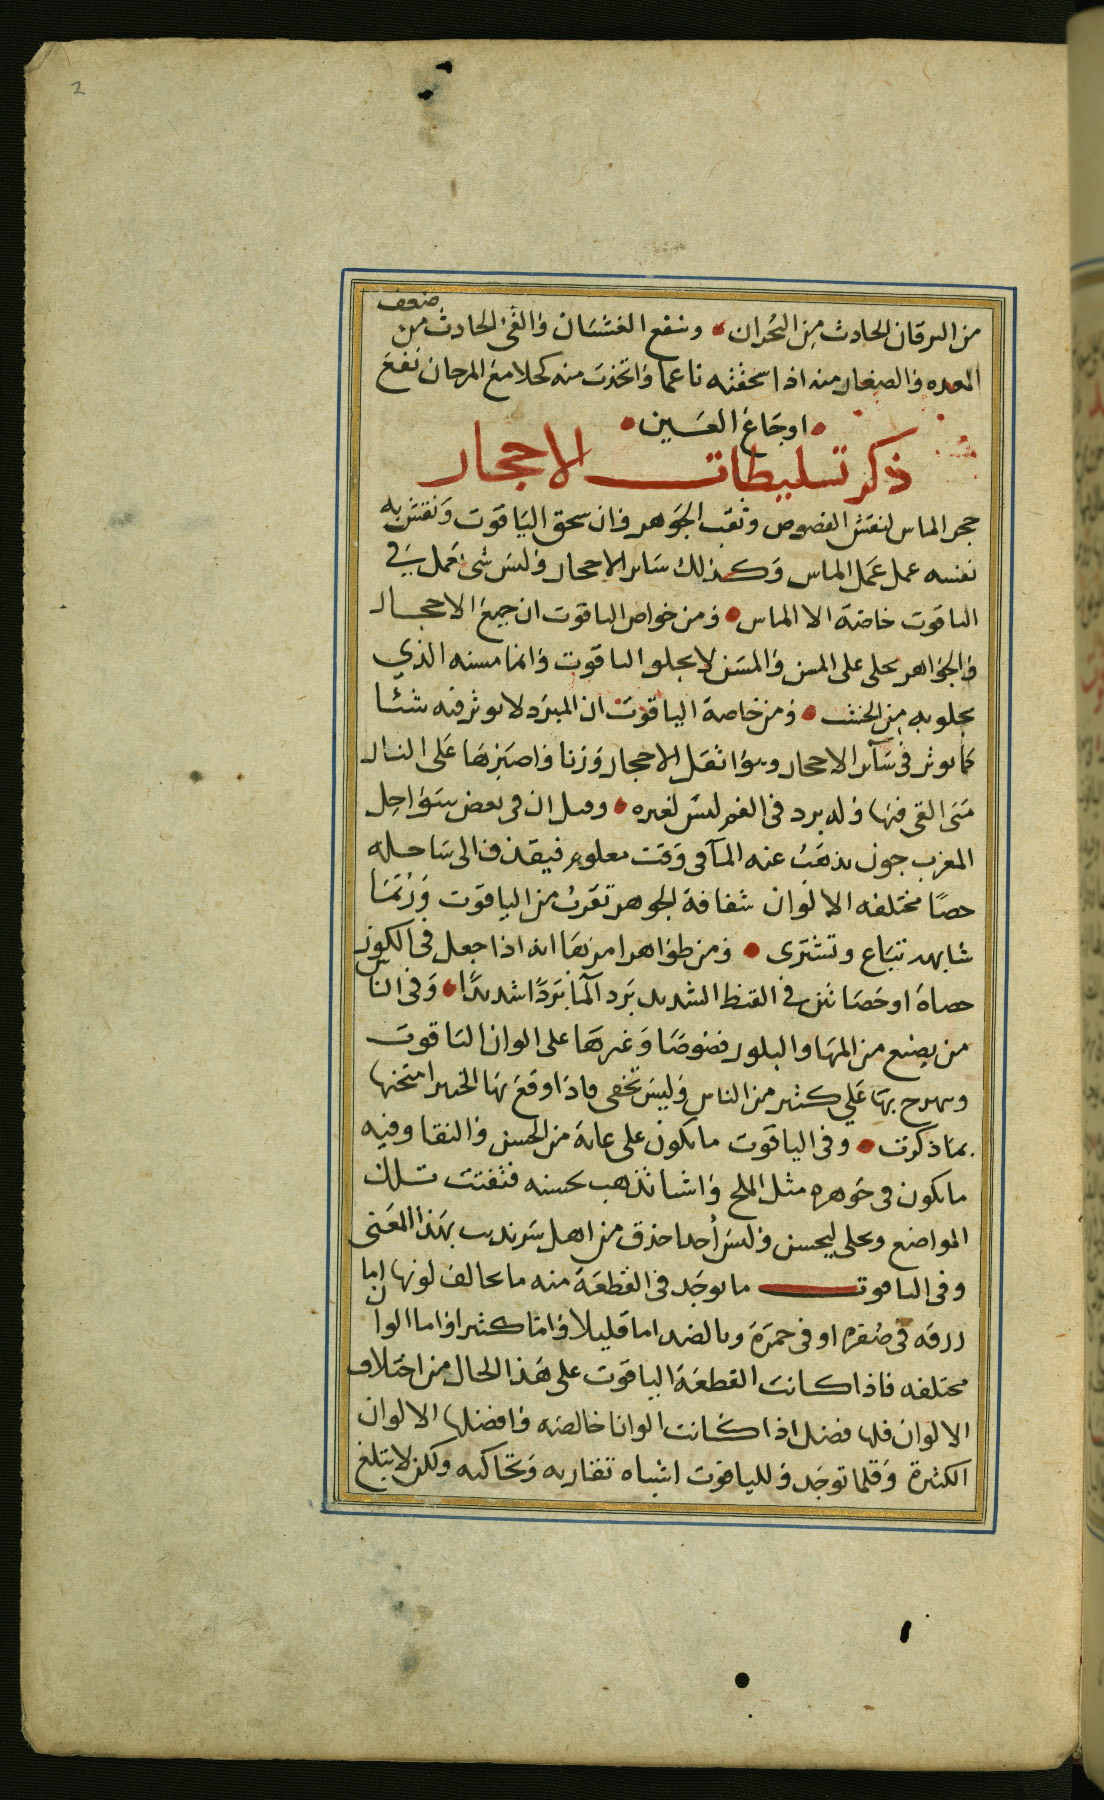 2
ضعف
من اليرقان الحادث من البحران وينفع الغشيان والقئ الحادث من
المعده والصغار منه اذا سحقته ناعما واتخذت منه كحلا مع المرجان نفع
اوجاع العين
ذكر تسليطات الاحجار
حجر الماس لنقش الفصوص وثقب الجوهر فان سحق الياقوت ونقش به
نفسه عمل عمل الماس وكذلك ساير الاحجار وليس شئ يعمل في
الياقوت خاصة الا الماس ومن خواص الياقوت ان جميع الاحجار
والجواهر يجلى على المسن والمسن لا يجلو الياقوت وانما مسنه الذي
يجلو به من الخشب ومن خاصة الياقوت ان المبرد لا يوثر فيه شئا
كما يوثر في ساير الاحجار وهو اثقل الاحجار وزنا واصبرها على النار
متى القى فيها وله برد في الفم ليس لغيره وقيل ان في بعض سواحل
المغرب جون يذهب عنه المآ في وقت معلوم فيقذف الى ساحله
حصا مختلفه الالوان شفافة الجوهر تقرب من الياقوت وربما
شابهه تباع وتشترى ومن ظواهر امرها انه اذا جعل في الكوز
حصاة او حصاتين في القيظ الشديد برد المآ بردا شديدا وفى الناس
من يصنع من المها والبلور فصوصا وغيرها على الوان الياقوت
وبهرج بها علي كثير من الناس وليس تخفى فاذا وقع بها الخبير امتحنها
بما ذكرت وفى الياقوت ما يكون على غاية من الحسن والنقا وفيه
ما يكون في جوهره مثل الملح واشيا تذهب بحسنه فتفتت تلك
المواضع وتجلى ليحسن وليس أحدا حذق من اهل سرنديب بهذا المعنى
وفى الياقوت ما يوجد في القطعة منه ما يخالف لونها اما
زرقه في صفره او في حمرة وبالضد اما قليلا واما كثيرا واما الوان
مختلفه فاذا كانت القطعة الياقوت على هذا الحال من اختلاف
الالوان فلها فضل اذا كانت الوانا خالصه وافضلها الالوان
الكثيرة وقلما توجد وللياقوت اشباه تقاربه وتحاكيه ولكن لا يبلغ